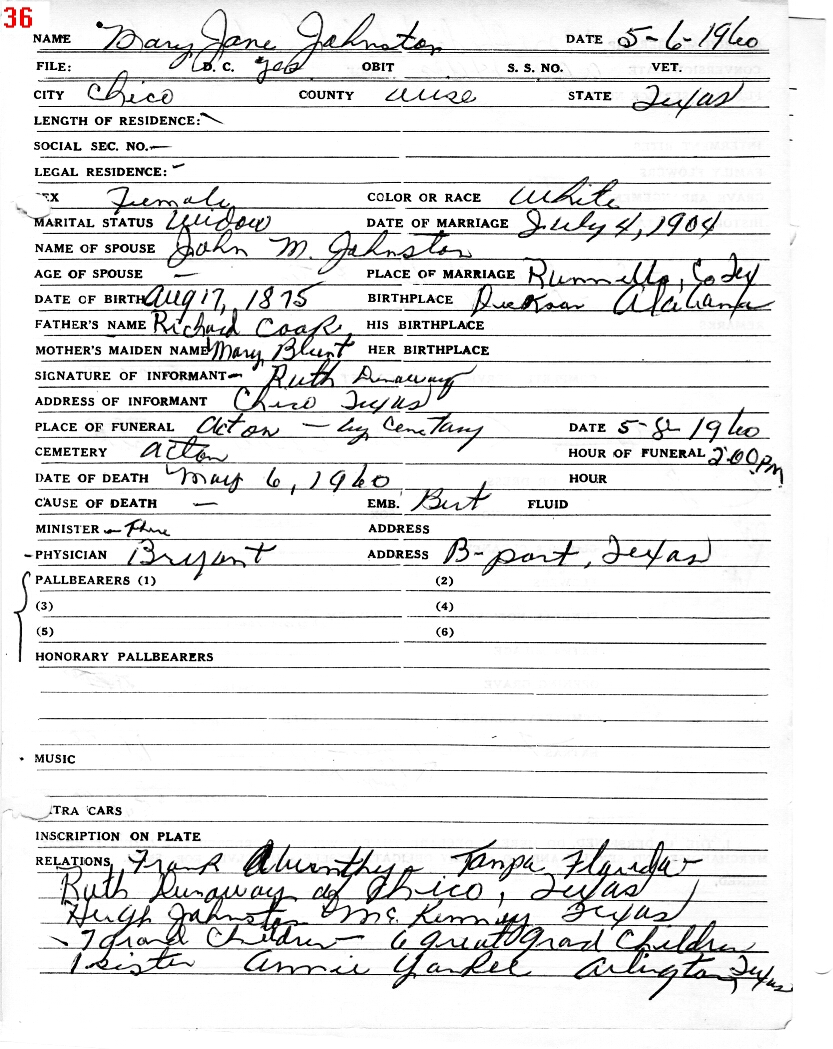 36
NAME Mary Jane Johnston DATE 5-6-1960
FILE: D. C. yes OBIT S. S. NO. VET.
CITY Chico COUNTY Wise STATE Texas
LENGTH OF RESIDENCE: -
SOCIAL SEC. NO. -
LEGAL RESIDENCE: -
EX Female COLOR OR RACE White
MARITAL STATUS Widow DATE OF MARRIAGE July 4, 1904
NAME OF SPOUSE John M. Johnston
AGE OF SPOUSE - PLACE OF MARRIAGE Runnells, Co Tex
DATE OF BIRTH Aug 17, 1875 BIRTHPLACE Alabama
FATHER'S NAME Richard Cook HIS BIRTHPLACE
MOTHER'S MAIDEN NAME Mary Blunt HER BIRTHPLACE
SIGNATURE OF INFORMANT - Ruth Dunaway
ADDRESS OF INFORMANT Chico Texas
PLACE OF FUNERAL Acton - Cemetary DATE 5-8-1960
CEMETERY Acton HOUR OF FUNERAL 2:00 PM
DATE OF DEATH May 6, 1960 HOUR
CAUSE OF DEATH - EMB. Burt FLUID
MINISTER - ADDRESS
- PHYSICIAN Bryant ADDRESS B-port, Texas
PALLBEARERS (1) (2)
(3) (4)
(5) (6)
HONORARY PALLBEARERS
MUSIC
TRA CARS
INSCRIPTION ON PLATE
RELATIONS Frank Tampa Florida -
Ruth Dunaway of Chico, Texas
Hugh Johnston McKenney Texas
- 7 grand Children - 6 great grad Children
1 sister Annie Arlington, Texas